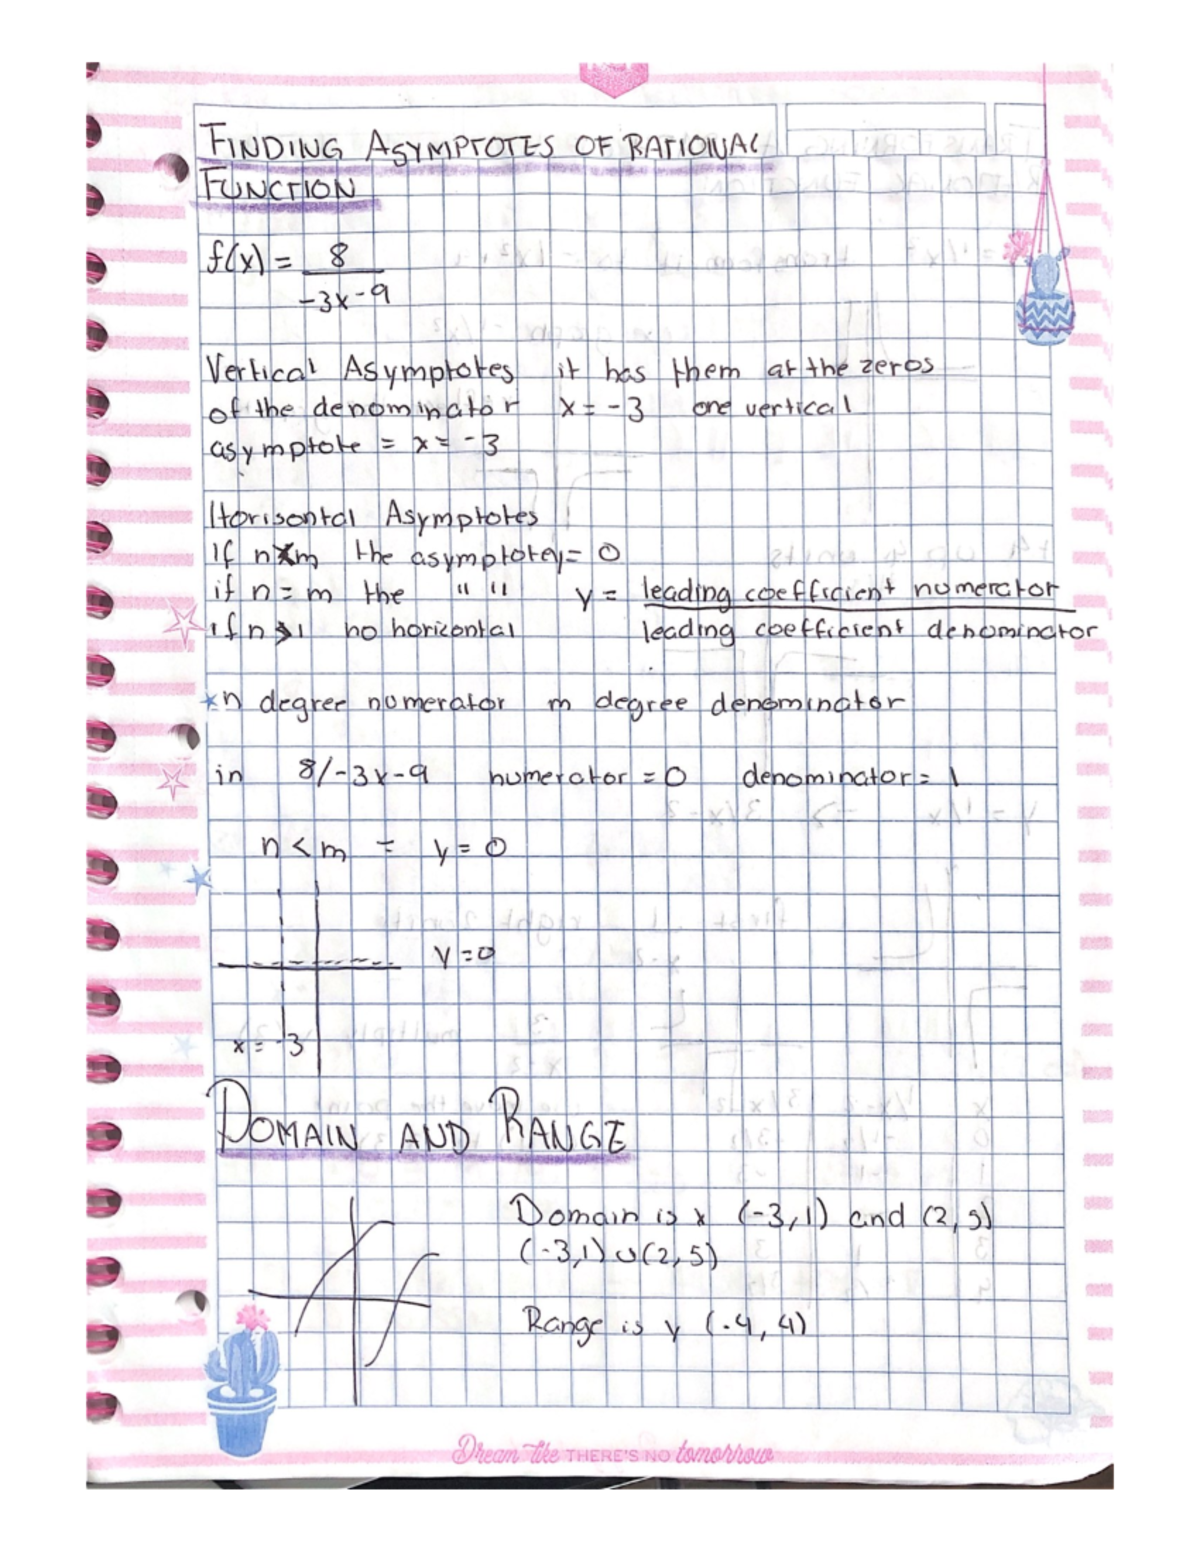 FINDING ASYMPTOTES OF RATIONAL
FUNCTION
f(x) = 8
-3x-9
Vertical Asymptotes it has them at the zeros
of the denominator x = -3 one vertical
asymptote = x = -3
Horisontal Asymptotes
If n<m the asymptote y= 0
if n = m the " " y = leading coefficient numerator
if n>1 no horizontal leading coefficient denominator
*n degree numerator m degree denominator
in 8/-3x-9 numerator = 0 denominator = 1
n < m = y = 0
y = 0
x = -3
DOMAIN AND RANGE
Domain is x (-3,1) and (2,5)
(-3,1) ∪ (2,5)
Range is y (-4, 4)
Dream like THERE'S NO tomorrow